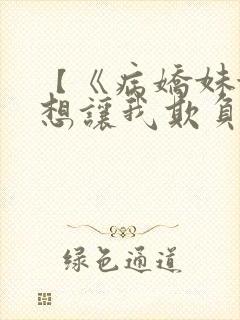 【《病嬌妹
想讓我欺負
绿色通道